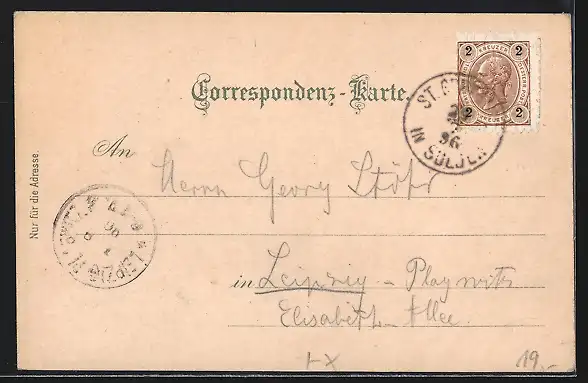 2 KREUZER 2
2 KREUZER 2
ST.
96
IN SÖLDEN
Correspondenz-Karte.
An
Herrn Georg Stöhr
Nur für die Adresse.
LEIPZIG
96
in Leipzig - Plagwitz
Elisabeth-Allee
19,-